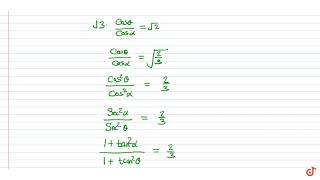 √3· Cosθ/Cosα = √2
Cosθ/Cosα = √(2/3)
Cos²θ/Cos²α = 2/3
Sec²α/Sec²θ = 2/3
1+tan²α/1+tan²θ = 2/3